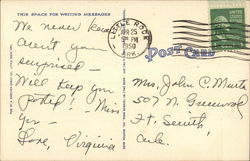 THIS SPACE FOR WRITING MESSAGES
We never know
aren't you
surprised -
Will keep you
posted! Miss
you -
Love, Virginia
LITTLE ROCK
APR 25
5 PM
1950
ARK.
POST CARD
Mrs. John C.
507 N. Greenwood
Ft. Smith
Ark.